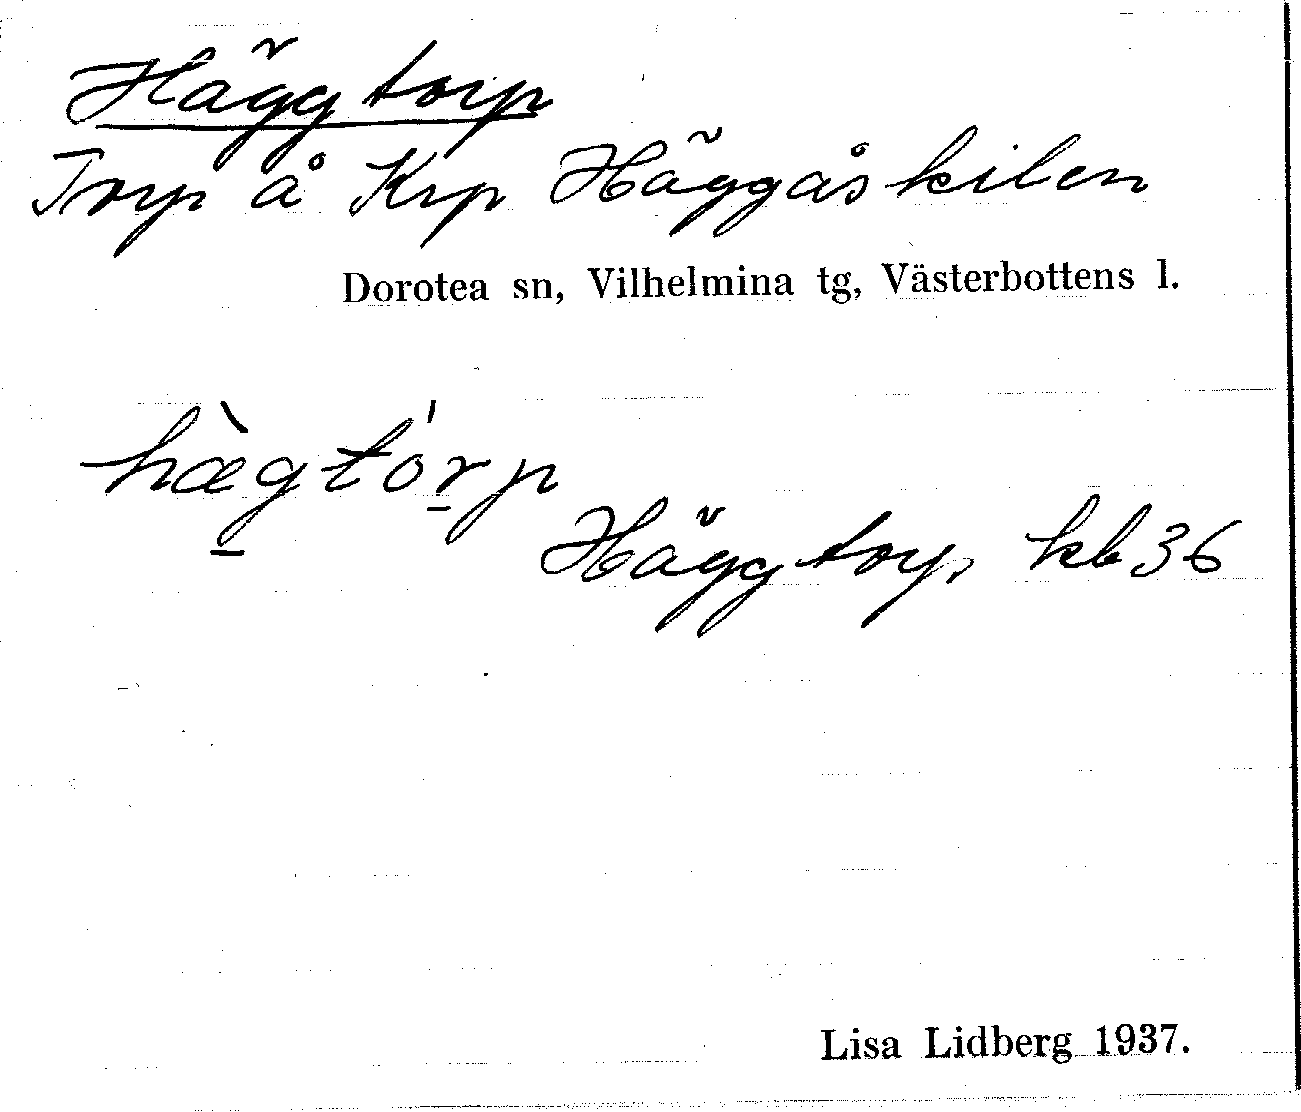 Häggtorp
Torp å Krp Häggåskilen
Dorotea sn, Vilhelmina tg, Västerbottens l.
hæ̀gtórp
Häggtorp, kb 36
Lisa Lidberg 1937.